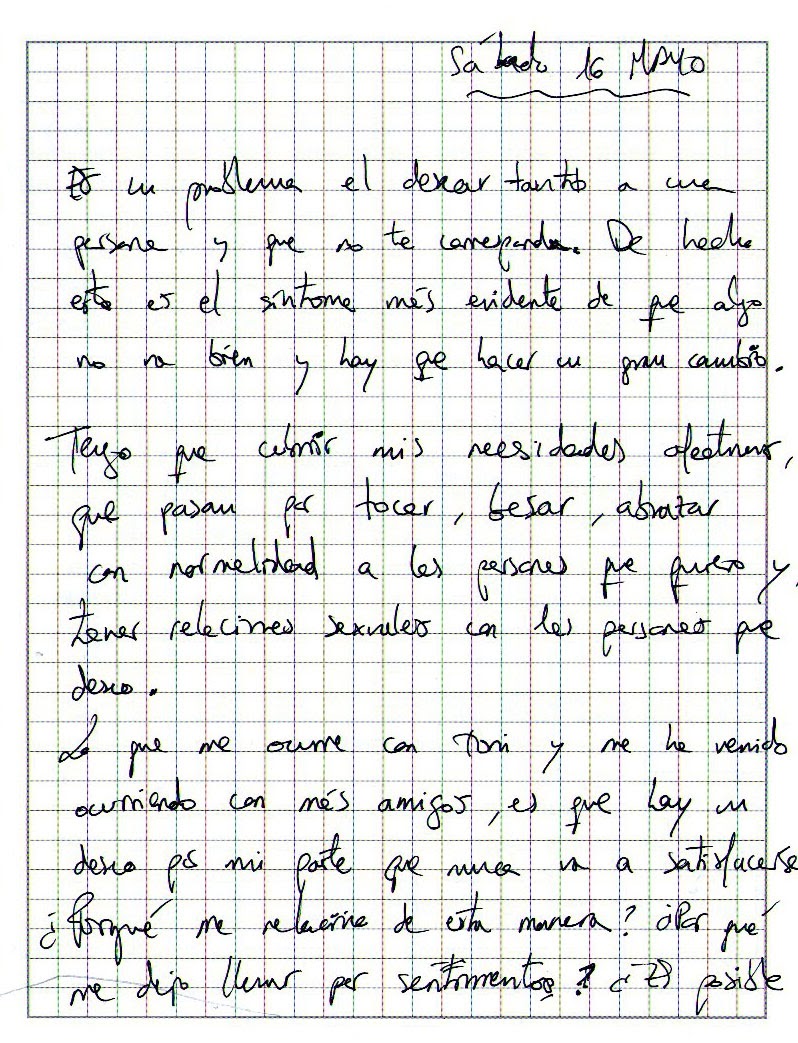 Sábado 16 MAYO
Es un problema el desear tanto a una
persona y que no te corresponda. De hecho
esto es el síntoma más evidente de que algo
no va bien y hay que hacer un gran cambio.
Tengo que cubrir mis necesidades afectivas,
que pasan por tocar, besar, abrazar
con normalidad a las personas que quiero y
tener relaciones sexuales con las personas que
deseo.
Lo que me ocurre con Toni y me ha venido
ocurriendo con más amigos, es que hay un
deseo por mi parte que nunca va a satisfacerse
¿Porqué me relaciono de esta manera? ¿Por qué
me dejo llevar por sentimientos? ¿Es posible